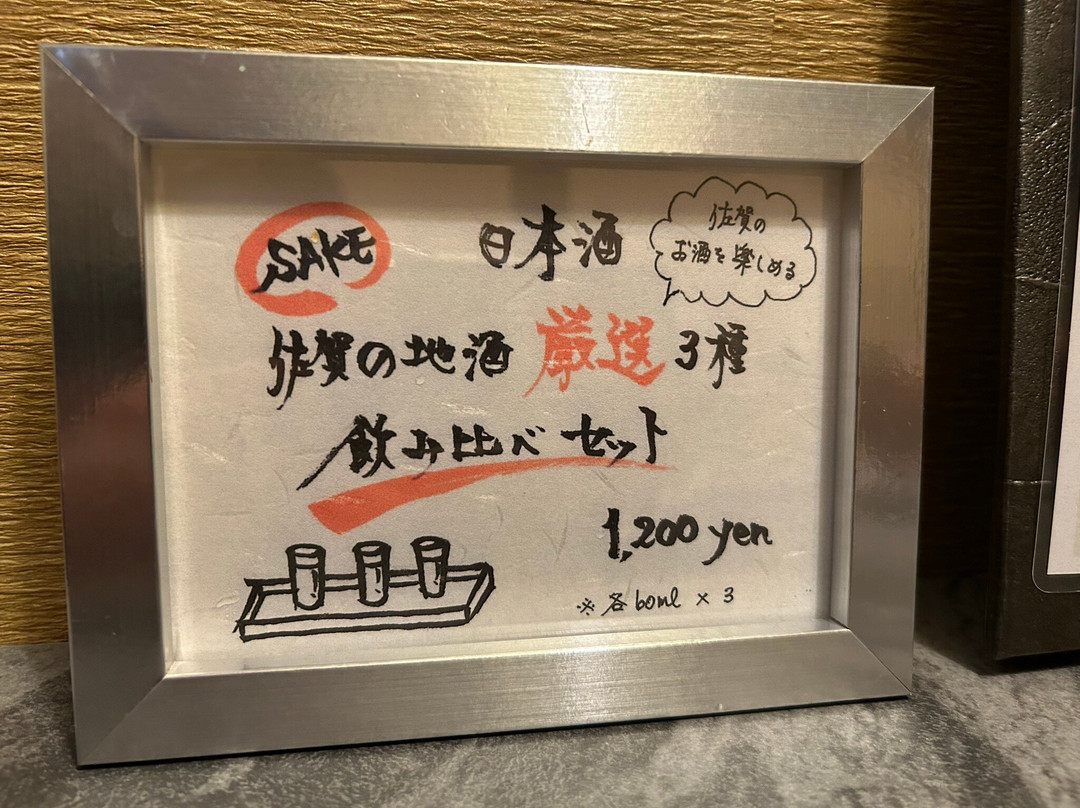 SAKE
日本酒
佐賀の
お酒を楽しめる
佐賀の地酒 厳選 3種
飲み比べ セット
1,200 yen
※ 各 60ml × 3